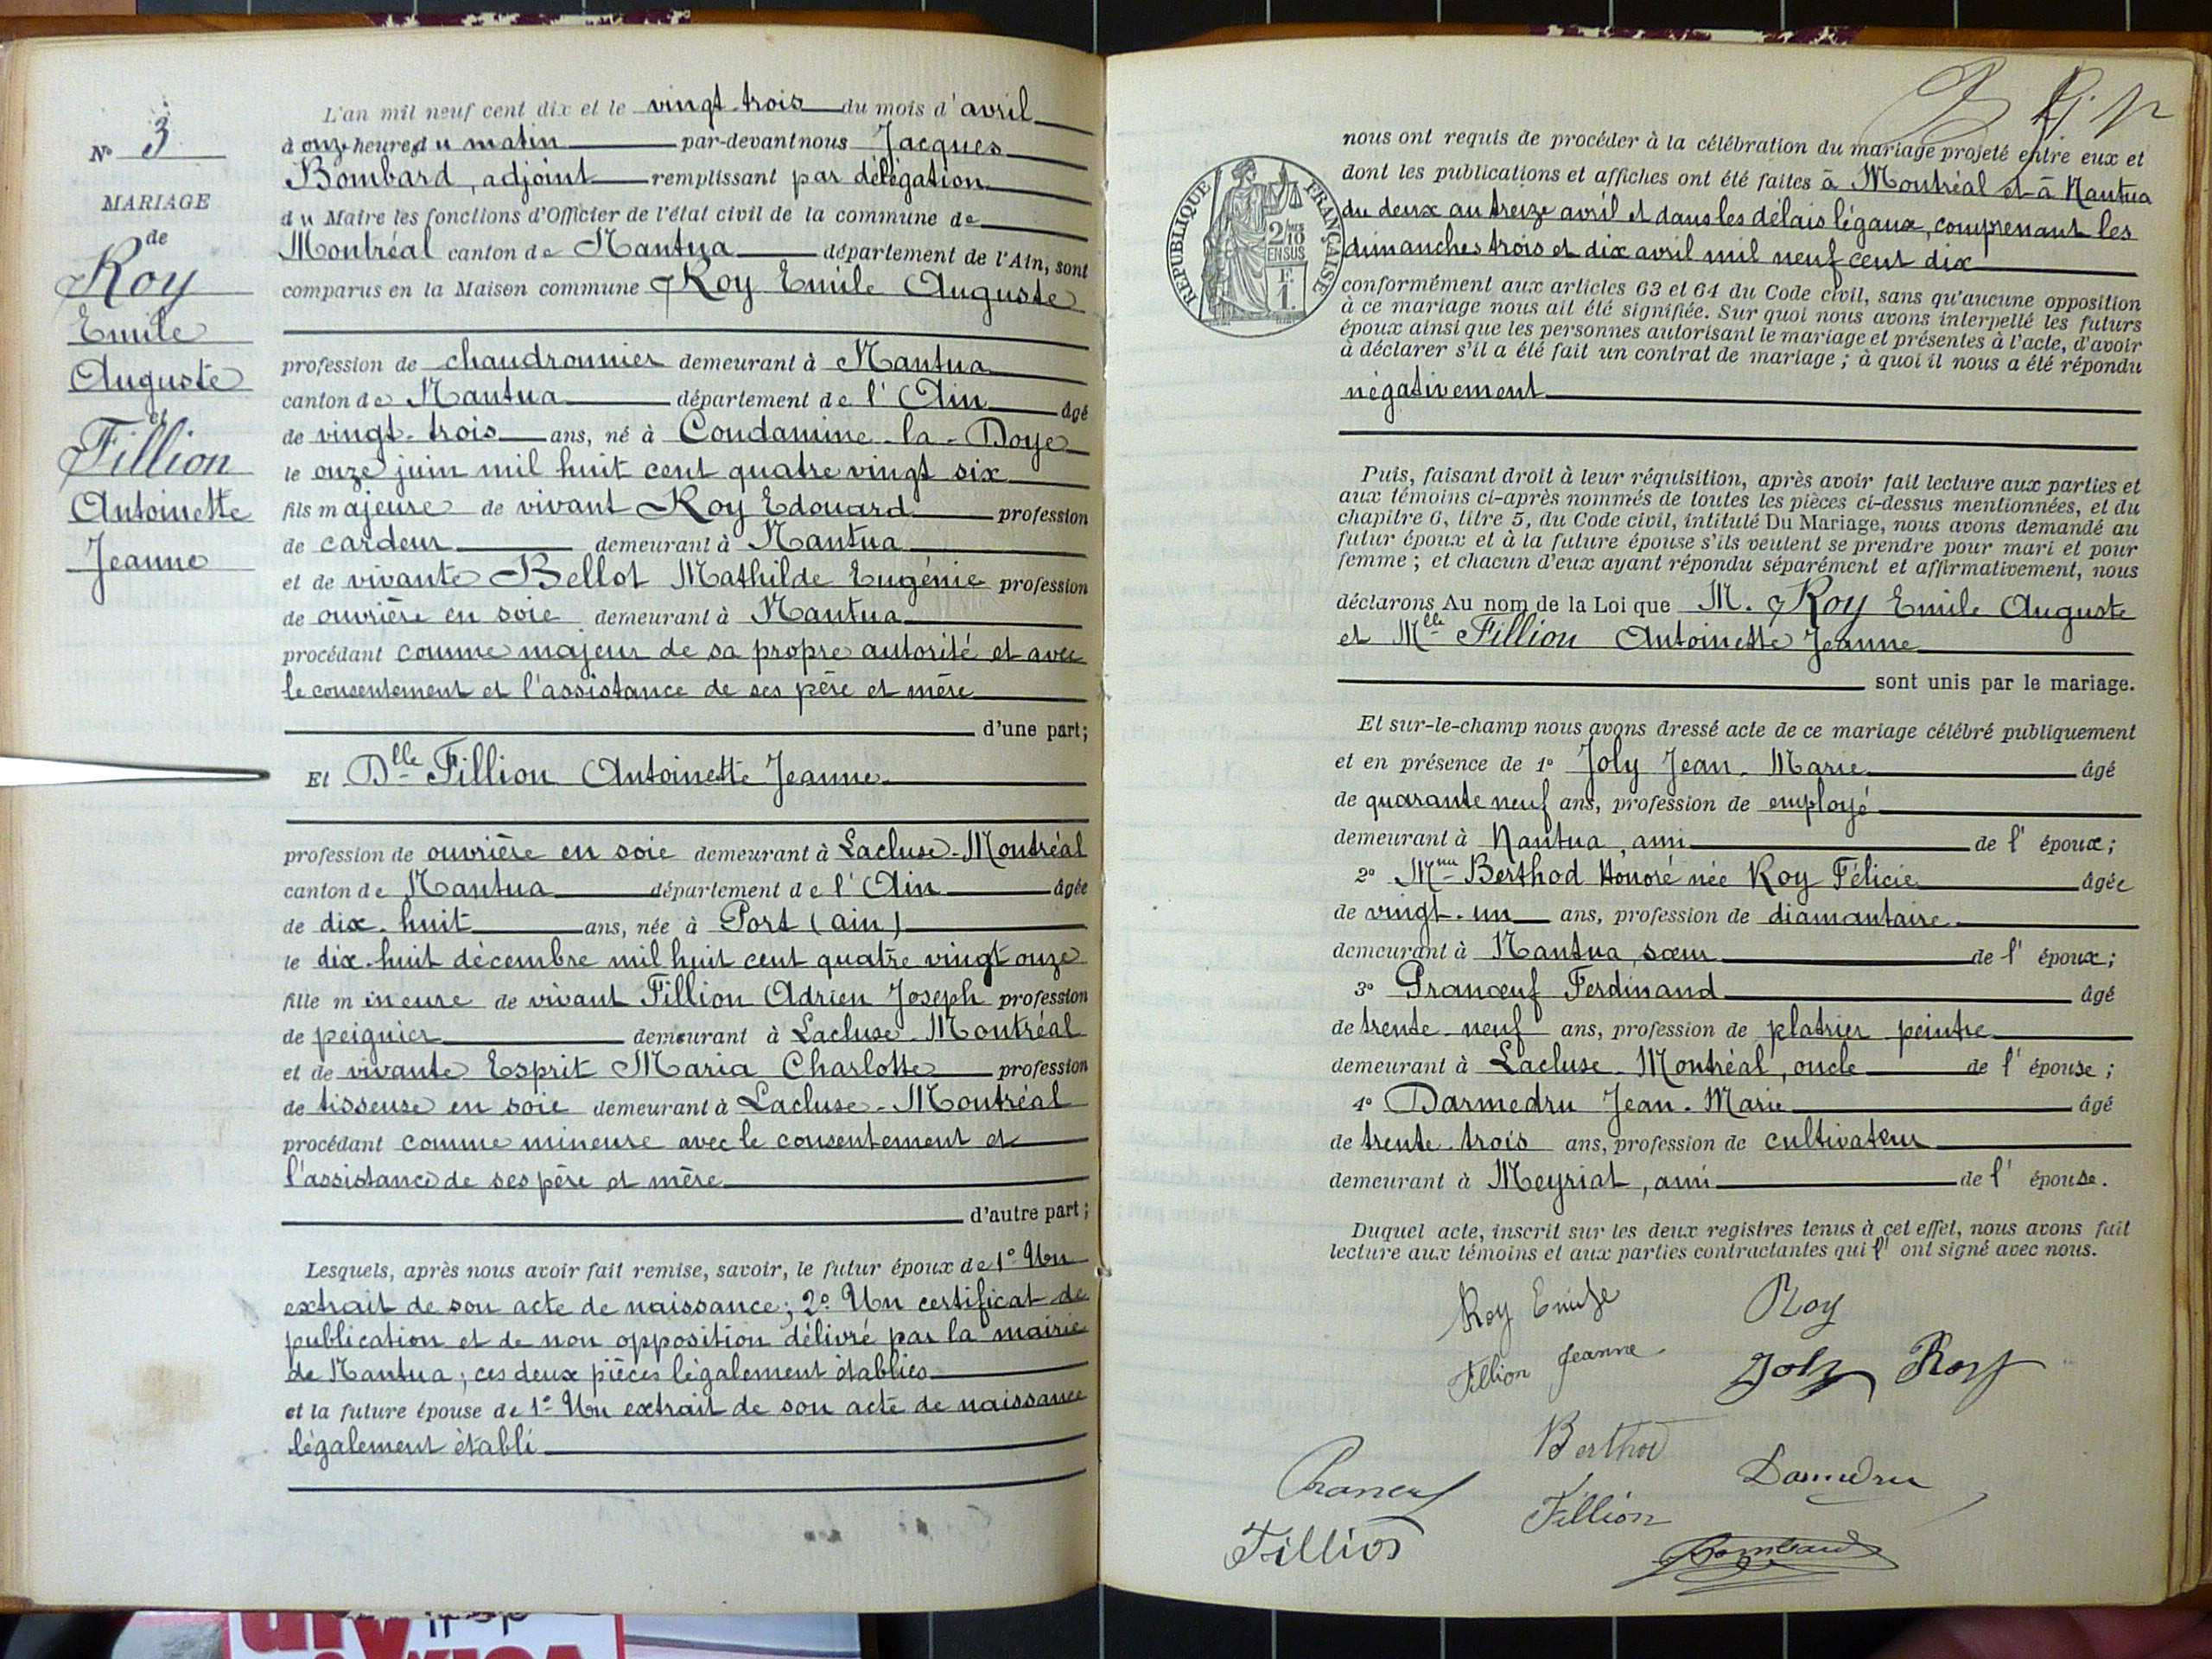 N° 3
MARIAGE
de
Roy
Emile
Auguste
et
Fillion
Antoinette
Jeanne
L'an mil neuf cent dix et le vingt-trois du mois d'avril
à onze heures du matin par-devant nous Jacques
Bombard, adjoint remplissant par délégation
du Maire les fonctions d'Officier de l'état civil de la commune de
Montréal canton de Nantua département de l'Ain, sont
comparus en la Maison commune Roy Emile Auguste
profession de chaudronnier demeurant à Nantua
canton de Nantua département de l'Ain âgé
de vingt-trois ans, né à Condamine-la-Doye
le onze juin mil huit cent quatre vingt six
fils majeure de vivant Roy Edouard profession
de cardeur demeurant à Nantua
et de vivante Bellot Mathilde Eugénie profession
de ouvrière en soie demeurant à Nantua
procédant comme majeur de sa propre autorité et avec
le consentement et l'assistance de ses père et mère
d'une part;
Et Dlle Fillion Antoinette Jeanne
profession de ouvrière en soie demeurant à Lacluse-Montréal
canton de Nantua département de l'Ain âgée
de dix-huit ans, née à Port (ain)
le dix-huit décembre mil huit cent quatre vingt onze
fille mineure de vivant Fillion Adrien Joseph profession
de peignier demeurant à Lacluse-Montréal
et de vivante Esprit Maria Charlotte profession
de tisseuse en soie demeurant à Lacluse-Montréal
procédant comme mineure avec le consentement et
l'assistance de ses père et mère
d'autre part;
Lesquels, après nous avoir fait remise, savoir, le futur époux de 1° Un
extrait de son acte de naissance; 2° Un certificat de
publication et de non opposition délivré par la mairie
de Nantua; ces deux pièces légalement établies
et la future épouse de 1° Un extrait de son acte de naissance
légalement établi
RÉPUBLIQUE FRANÇAISE
2/10
EN SUS
F
1.
nous ont requis de procéder à la célébration du mariage projeté entre eux et
dont les publications et affiches ont été faites à Montréal et à Nantua
du deux au treize avril et dans les délais légaux, comprenant les
dimanches trois et dix avril mil neuf cent dix
conformément aux articles 63 et 64 du Code civil, sans qu'aucune opposition
à ce mariage nous ait été signifiée. Sur quoi nous avons interpellé les futurs
époux ainsi que les personnes autorisant le mariage et présentes à l'acte, d'avoir
à déclarer s'il a été fait un contrat de mariage; à quoi il nous a été répondu
négativement
Puis, faisant droit à leur réquisition, après avoir fait lecture aux parties et
aux témoins ci-après nommés de toutes les pièces ci-dessus mentionnées, et du
chapitre 6, titre 5, du Code civil, intitulé Du Mariage, nous avons demandé au
futur époux et à la future épouse s'ils veulent se prendre pour mari et pour
femme; et chacun d'eux ayant répondu séparément et affirmativement, nous
déclarons Au nom de la Loi que M. Roy Emile Auguste
et Mlle Fillion Antoinette Jeanne
sont unis par le mariage.
Et sur-le-champ nous avons dressé acte de ce mariage célébré publiquement
et en présence de 1° Joly Jean-Marie âgé
de quarante neuf ans, profession de employé
demeurant à Nantua, ami de l'époux;
2° Mme Berthod Honoré née Roy Félicie âgée
de vingt-un ans, profession de diamantaire
demeurant à Nantua, sœur de l'époux;
3° Pranœuf Ferdinand âgé
de trente-neuf ans, profession de platrier peintre
demeurant à Lacluse-Montréal, oncle de l'épouse;
4° Darmedru Jean-Marie âgé
de trente-trois ans, profession de cultivateur
demeurant à Meyriat, ami de l'épouse.
Duquel acte, inscrit sur les deux registres tenus à cet effet, nous avons fait
lecture aux témoins et aux parties contractantes qui l'ont signé avec nous.
Roy Emile Roy
Fillion Jeanne Joly Roy
Berthod
Pranœuf Fillion Darmedru
Fillion Bombard